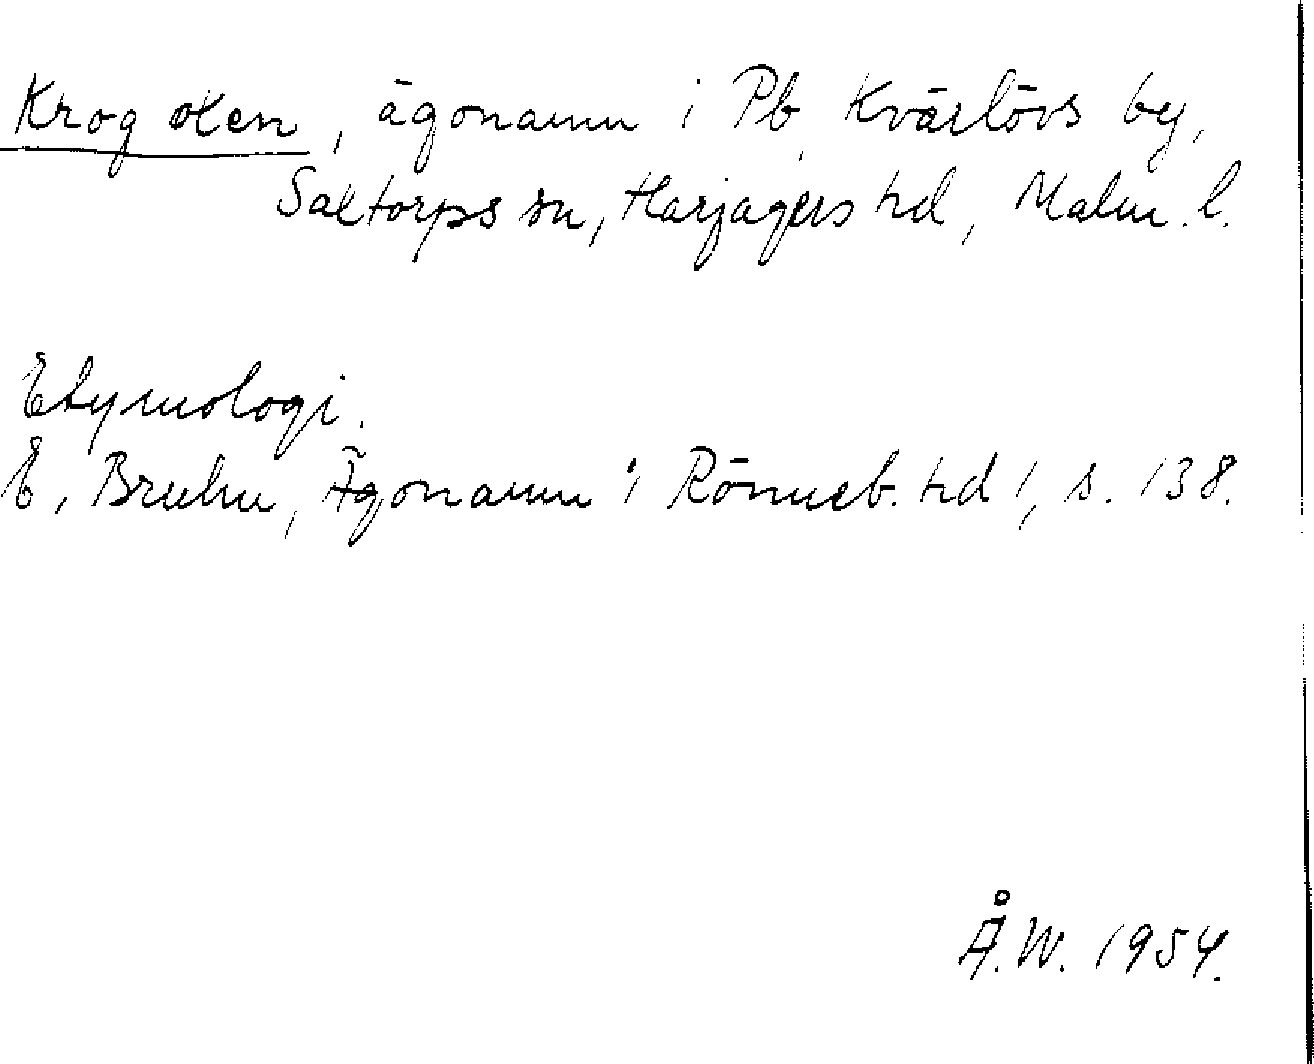 Krog oken, ägonamn i Pb Kvärlövs by,
Saxtorps sn, Harjagers hd, Malm. l.
Etymologi.
E. Bruhn, Ägonamn i Rönneb. hd 1, s. 138.
Å.W. 1954.